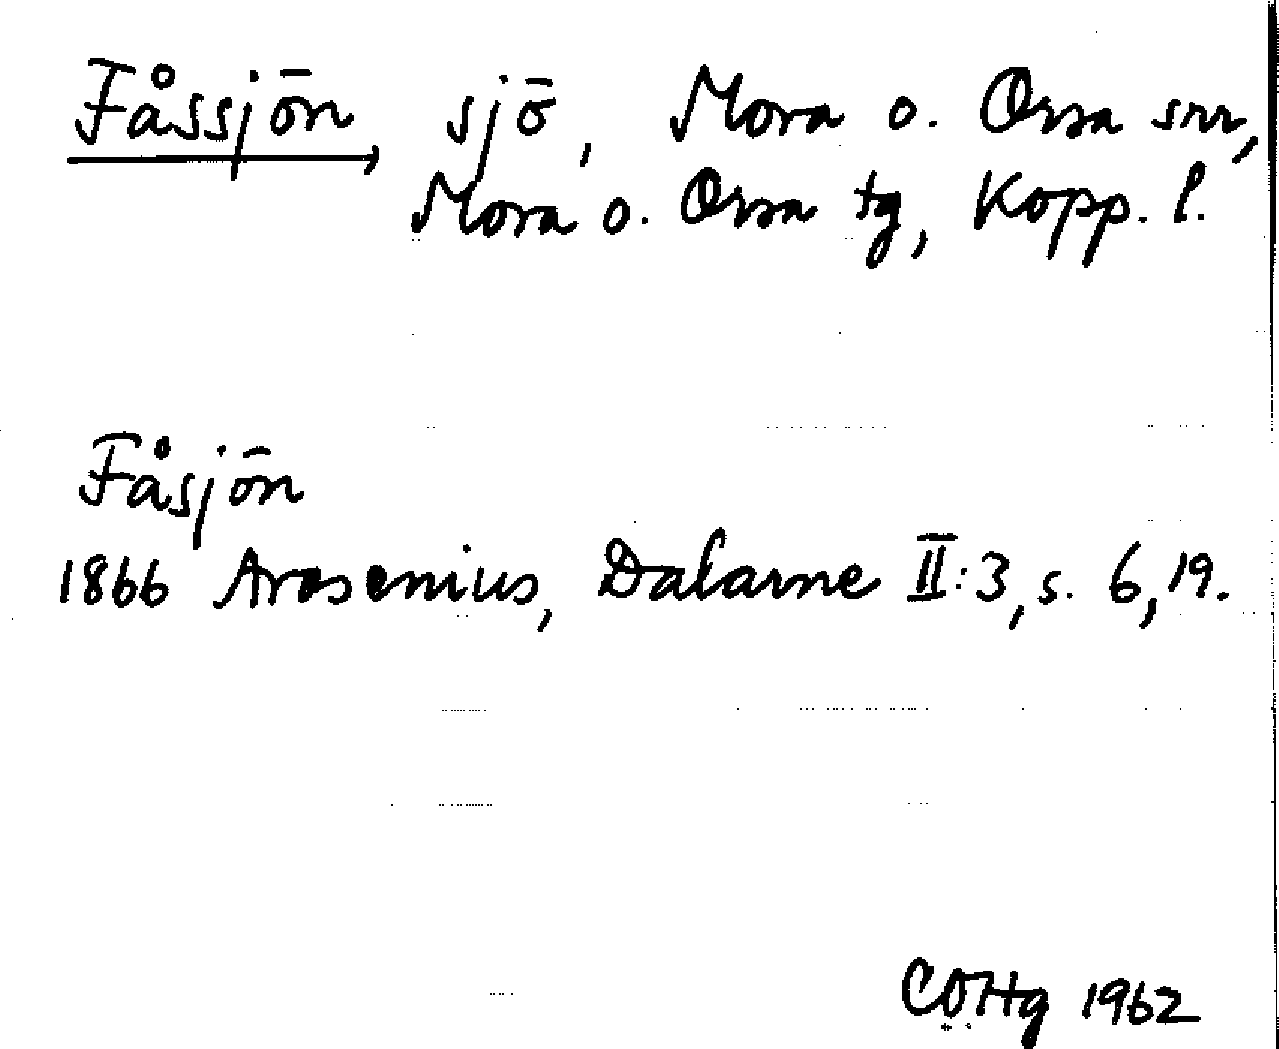 Fåssjön, sjö, Mora o. Orsa srr,
Mora o. Orsa tg, Kopp. l.
Fåsjön
1866 Arosenius, Dalarne II:3, s. 6, 19.
COHg 1962